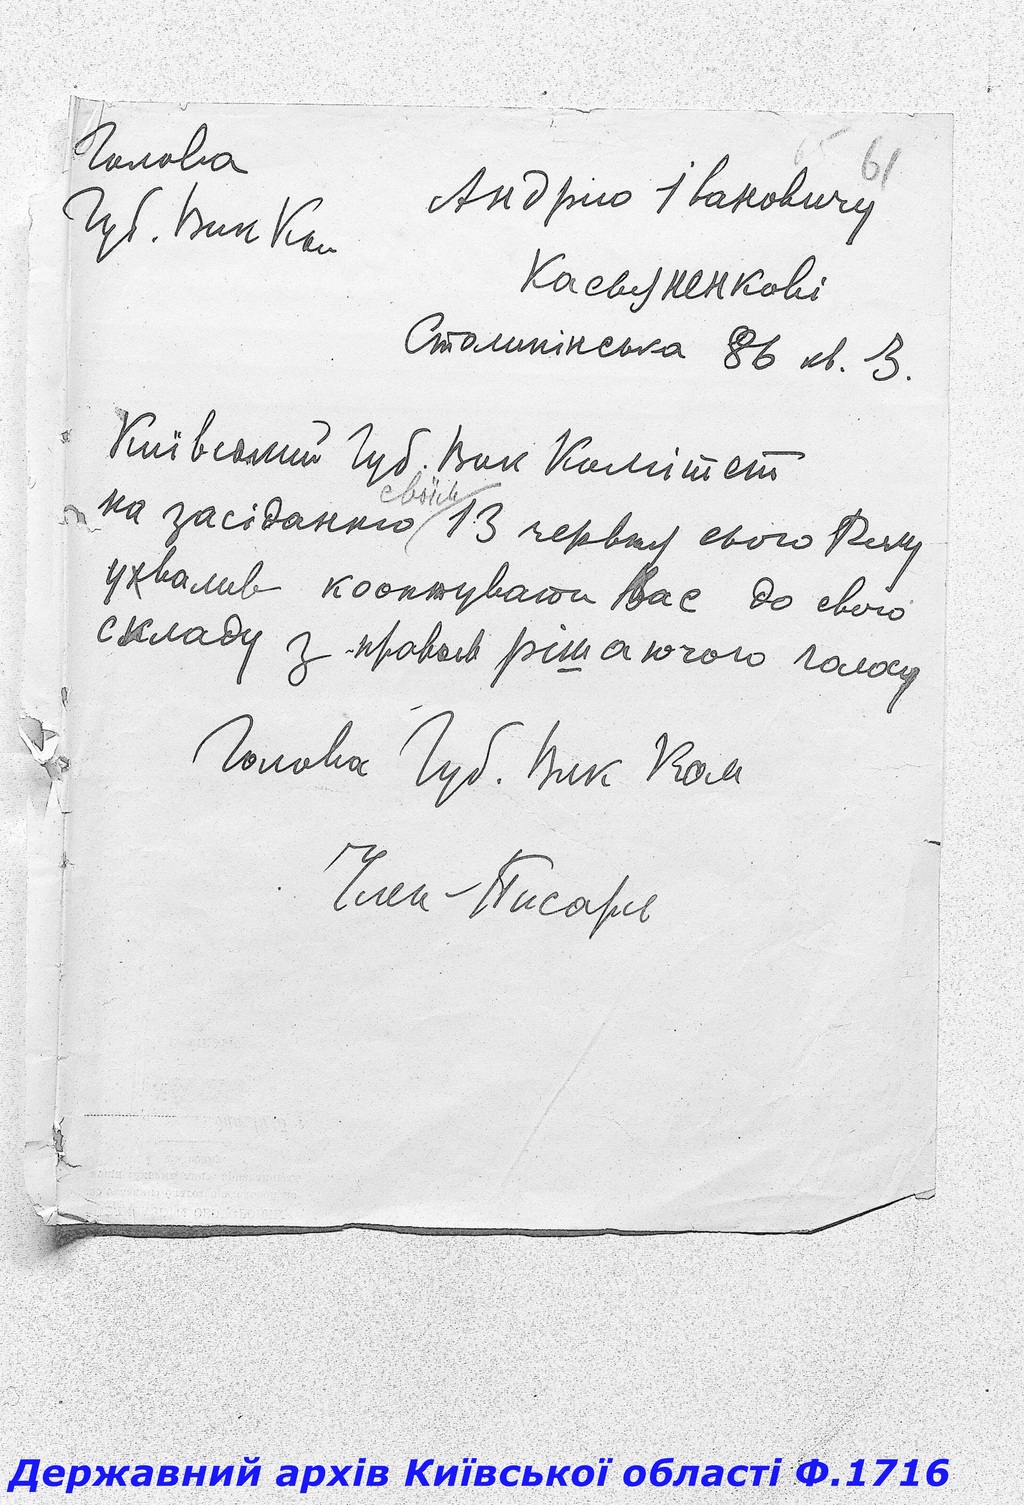 61
Голова
Губ. Вик Ком
Андрію Івановичу
Касьяненкові
Столипінська 86 кв. 3.
Київський Губ. Вик Комітет
на засіданню своїм 13 червня свого Року
ухвалив кооптувати Вас до свого
складу з правом рішаючого голосу
Голова Губ. Вик Ком
Член-Писарь
Державний архів Київської області Ф.1716